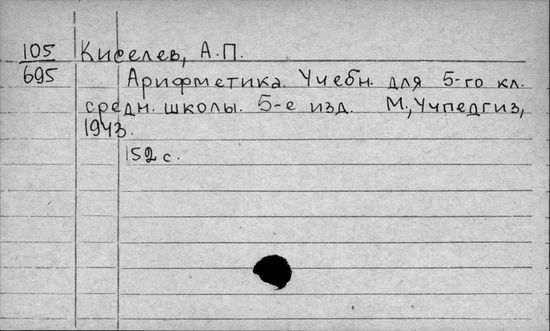 105 Киселев, А.П.
695 Арифметика. Учебн. для 5-го кл.
средн. школы. 5-е изд. М., Учпедгиз,
1943.
152 с.